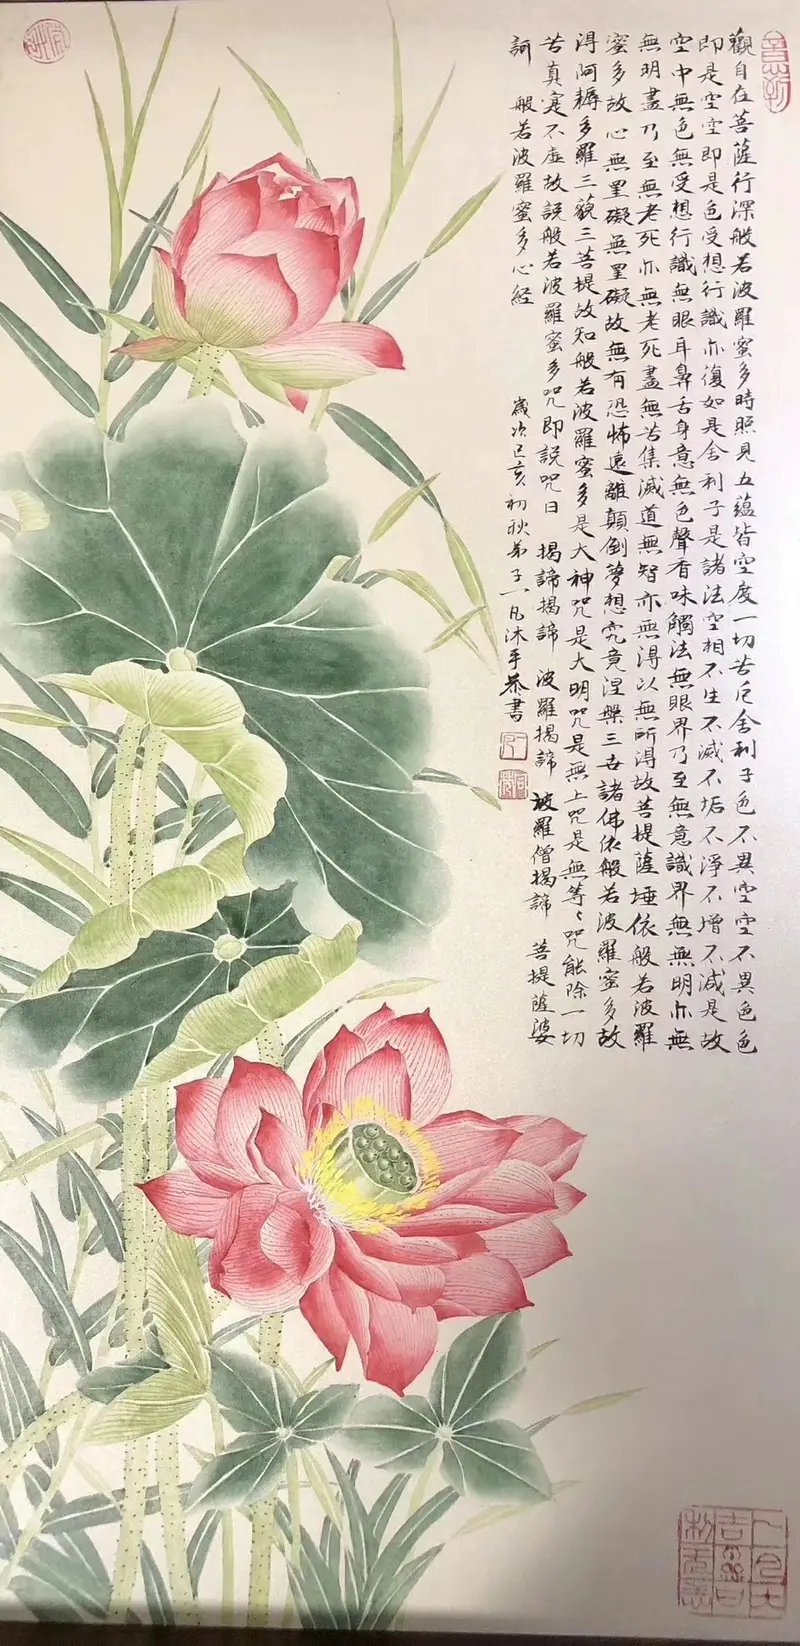 觀自在菩薩行深般若波羅蜜多時照見五蘊皆空度一切苦厄舍利子色不異空空不異色色
即是空空即是色受想行識亦復如是舍利子是諸法空相不生不滅不垢不淨不增不減是故
空中無色無受想行識無眼耳鼻舌身意無色聲香味觸法無眼界乃至無意識界無無明亦無
無明盡乃至無老死亦無老死盡無苦集滅道無智亦無得以無所得故菩提薩埵依般若波羅
蜜多故心無罣礙無罣礙故無有恐怖遠離顛倒夢想究竟涅槃三世諸佛依般若波羅蜜多故
得阿耨多羅三藐三菩提故知般若波羅蜜多是大神咒是大明咒是無上咒是無等々咒能除一切
苦真寔不虛故說般若波羅蜜多咒即說咒曰 揭諦揭諦 波羅揭諦 波羅僧揭諦 菩提薩婆
訶 般若波羅蜜多心經
歲次己亥初秋弟子一凡沐手恭書